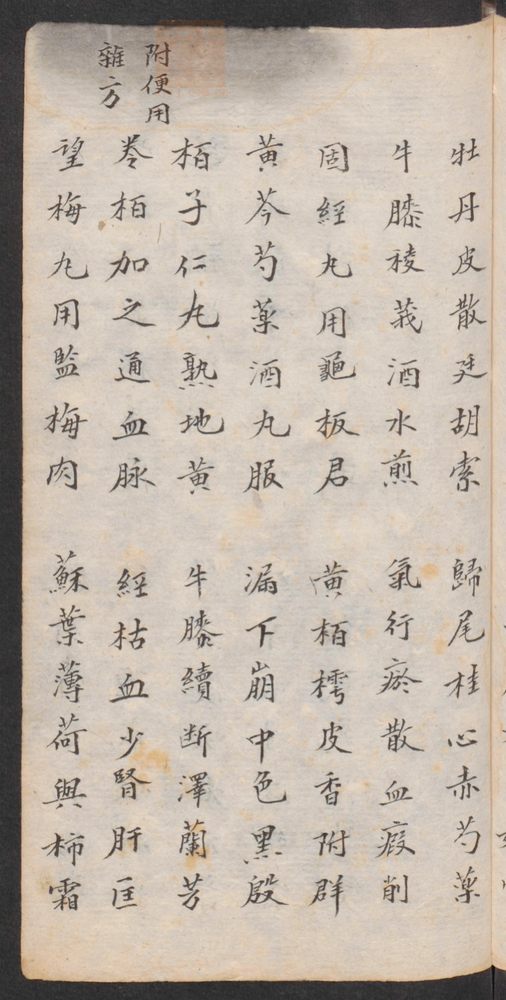 牡丹皮散延胡索　歸尾桂心赤芍藥
牛膝稜莪酒水煎　氣行瘀散血瘕削
固經丸用龜板君　黃柏樗皮香附群
黃芩芍藥酒丸服　漏下崩中色黑殷
栢子仁丸熟地黃　牛膝續断澤蘭芳
卷栢加之通血脉　經枯血少腎肝匡
望梅丸用監梅肉　蘇葉薄荷與柿霜
附便用
雜方